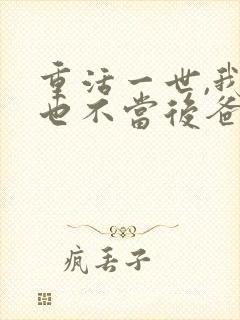 重活一世,我
也不當後爸
瘋丟子